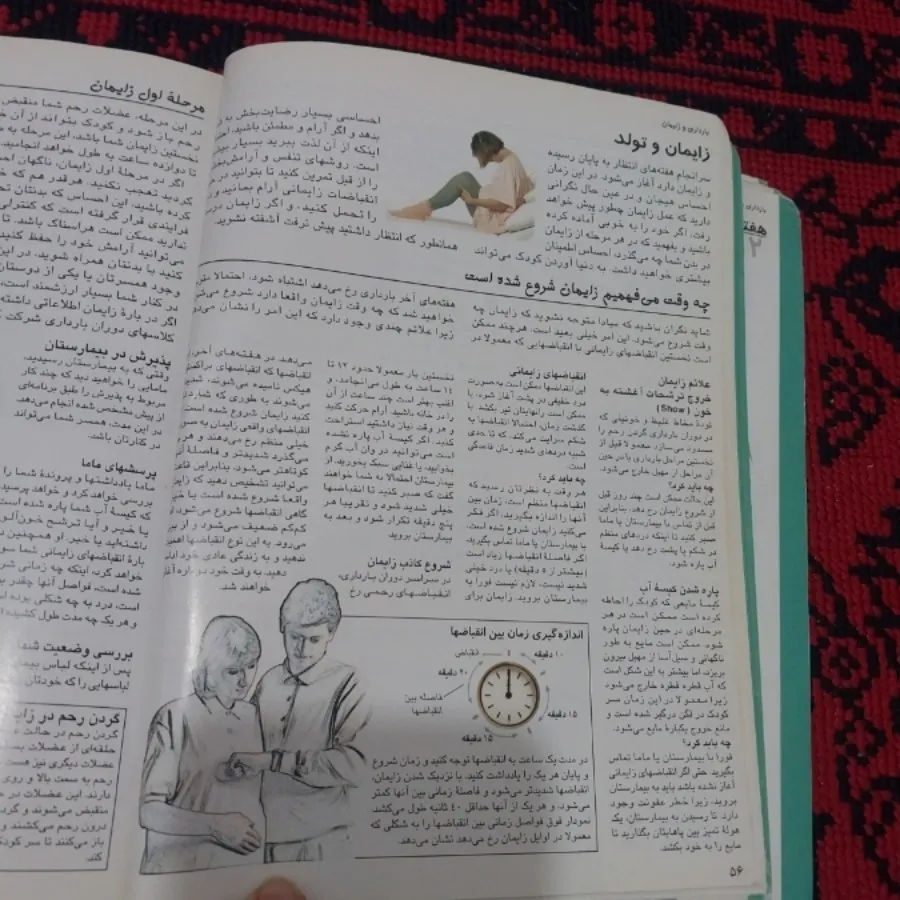 بارداری و زایمان
زایمان و تولد
سرانجام هفته‌های انتظار به پایان رسیده
و زایمان دارد آغاز می‌شود. در این زمان
احساس هیجان و در عین حال نگرانی
دارید که عمل زایمان چطور پیش خواهد
رفت. اگر خود را به خوبی آماده کرده
باشید و بفهمید که در هر مرحله از زایمان
در بدن شما چه می‌گذرد، احساس اطمینان
بیشتری خواهید داشت. به دنیا آوردن کودک می‌تواند
احساسی بسیار رضایت‌بخش به
بدهد و اگر آرام و مطمئن باشید،
اینکه از آن لذت ببرید بسیار
است. روشهای تنفس و آرامش‌بخش
را از قبل تمرین کنید تا بتوانید در
انقباضات زایمانی آرام بمانید و
را تحمل کنید. و اگر زایمان درست
همانطور که انتظار داشتید پیش نرفت آشفته نشوید.
چه وقت می‌فهمیم زایمان شروع شده است
شاید نگران باشید که مبادا متوجه نشوید که زایمان چه
وقت شروع می‌شود. این امر خیلی بعید است. هرچند ممکن
است نخستین انقباضهای زایمانی با انقباضهایی که معمولا در
هفته‌های آخر بارداری رخ می‌دهد اشتباه شود، احتمالا
خواهید شد که چه وقت زایمان واقعا دارد شروع می‌شود
زیرا علائم چندی وجود دارد که این امر را نشان می‌دهد
علائم زایمان
خروج ترشحات آغشته به
خون (Show)
تودهٔ مخاط غلیظ و خونینی که
در دوران بارداری گردن رحم را
مسدود می‌سازد، معمولا قبل از
نخستین مراحل بارداری یا در حین
آن مراحل از مهبل خارج می‌شود.
چه باید کرد؟
این حالت ممکن است چند روز قبل
از شروع زایمان رخ دهد، بنابراین
قبل از تماس با بیمارستان یا ماما
صبر کنید تا اینکه دردهای منظم
در شکم یا پشت رخ دهد یا کیسهٔ
آب پاره شود.
پاره شدن کیسهٔ آب
کیسهٔ مایعی که کودک را احاطه
کرده است ممکن است در هر
مرحله‌ای در حین زایمان پاره
شود. ممکن است مایع به طور
ناگهانی و سیل‌آسا از مهبل بیرون
بریزد، اما بیشتر به این شکل است
که آب قطره قطره خارج می‌شود
زیرا معمولا در این زمان سر
کودک در لگن درگیر شده است و
مانع خروج یکبارهٔ مایع می‌شود.
چه باید کرد؟
فورا با بیمارستان یا ماما تماس
بگیرید. حتی اگر انقباضهای زایمانی
آغاز نشده باشد باید به بیمارستان
بروید، زیرا خطر عفونت وجود
دارد. تا رسیدن به بیمارستان، یک
حولهٔ تمیز بین پاهایتان بگذارید تا
مایع را به خود بکشد.
انقباضهای زایمانی
این انقباضها ممکن است به صورت
درد خفیفی در پشت آغاز شود، یا
ممکن است رانهایتان تیر بکشد. با
گذشت زمان، احتمالا انقباضها به
شکم سرایت می‌کند، که تا حدی
شبیه دردهای شدید زمان قاعدگی
است.
چه باید کرد؟
هر وقت به نظرتان رسید که
انقباضها منظم است، زمان بین
آنها را اندازه بگیرید. اگر فکر
می‌کنید زایمان شروع شده است،
با بیمارستان یا ماما تماس بگیرید.
اگر فاصلهٔ انقباضها زیاد است
(بیشتر از ۵ دقیقه) یا درد خیلی
شدید نیست، لازم نیست فورا به
بیمارستان بروید. زایمان برای
نخستین بار معمولا حدود ۱۲ تا
۱۴ ساعت به طول می‌انجامد، و
اغلب بهتر است چند ساعت از آن
را در خانه باشید. آرام حرکت کنید
و هر وقت نیاز داشتید استراحت
کنید. اگر کیسهٔ آب پاره نشده
است می‌توانید در وان آب گرم
بخوابید، یا غذایی سبک بخورید. از
بیمارستان احتمالا به شما خواهند
گفت که صبر کنید تا انقباضها
خیلی شدید شود و تقریبا هر
پنج دقیقه تکرار شود و بعد به
بیمارستان بروید
شروع کاذب زایمان
در سراسر دوران بارداری،
انقباضهای رحمی رخ
می‌دهد. در هفته‌های آخر،
انقباضها که انقباضهای براکستون
هیکس نامیده می‌شوند،
می‌شوند به طوری که شاید
کنید زایمان شروع شده است.
انقباضهای واقعی زایمان به
خیلی منظم رخ می‌دهند و هر
می‌گذرد شدیدتر و فاصلهٔ
کوتاهتر می‌شود، بنابراین
می‌توانید تشخیص دهید که
واقعا شروع شده است یا خیر.
گاهی انقباضها شروع می‌شود
کم‌کم ضعیف می‌شود و از بین
می‌رود. به این نوع انقباضها
ندهید و به زندگی عادی خود
دهید. به وقت خود دوباره آغاز
خواهند شد.
اندازه‌گیری زمان بین انقباضها
انقباض
۱۰ دقیقه
۲۰ دقیقه
فاصله بین
انقباضها
۱۵ دقیقه
۱۵ دقیقه
در مدت یک ساعت به انقباضها توجه کنید و زمان شروع
و پایان هر یک را یادداشت کنید. با نزدیک شدن زایمان،
انقباضها شدیدتر می‌شود و فاصلهٔ زمانی بین آنها کمتر
می‌شود، و هر یک از آنها حداقل ۴۰ ثانیه طول می‌کشد.
نمودار فوق فواصل زمانی بین انقباضها را به شکلی که
معمولا در اوایل زایمان رخ می‌دهد نشان می‌دهد.
۵۶
مرحلهٔ اول زایمان
در این مرحله، عضلات رحم شما منقبض
رحم باز شود و کودک بتواند از آن
نخستین زایمان شما باشد، این مرحله به
تا دوازده ساعت به طول خواهد انجامید.
اگر در مرحلهٔ اول زایمان، ناگهان
کردید تعجب نکنید. هرقدر هم که
کرده باشید، این احساس که بدنتان
فرایندی قرار گرفته است که کنترلی
ندارید ممکن است هراسناک باشد.
می‌توانید آرامش خود را حفظ کنید
کنید با بدنتان همراه شوید. در این
وجود همسرتان یا یکی از دوستان
در کنار شما بسیار ارزشمند است،
اگر در بارهٔ زایمان اطلاعاتی داشته
کلاسهای دوران بارداری شرکت
پذیرش در بیمارستان
وقتی که به بیمارستان رسیدید،
مامایی را خواهید دید که چند کار
مربوط به پذیرش را طبق برنامه‌ای
از پیش مشخص شده انجام می‌دهد.
در این مدت، همسر شما می‌تواند
در کنارتان باشد.
پرسشهای ماما
ماما یادداشتها و پروندهٔ شما را
بررسی خواهد کرد و خواهد پرسید
که کیسهٔ آب شما پاره شده است
یا خیر و آیا ترشح خون‌آلود
داشته‌اید یا خیر. او همچنین در
بارهٔ انقباضهای زایمانی شما
خواهد کرد، اینکه چه زمانی
شده است، فواصل آنها چقدر
است، درد به چه شکلی بوده
و هر یک چه مدت طول کشیده
بررسی وضعیت شما
پس از اینکه لباس
لباسهایی را که خودتان
گردن رحم در
گردن رحم در حالت
حلقه‌ای از عضلات
عضلات دیگری نیز هست
رحم به سمت بالا و روی
دارند. این عضلات در
منقبض می‌شوند و گردن
درون رحم می‌کشند و
باز می‌کنند تا سر کودک
کند.
بارداری و
هفته
۲